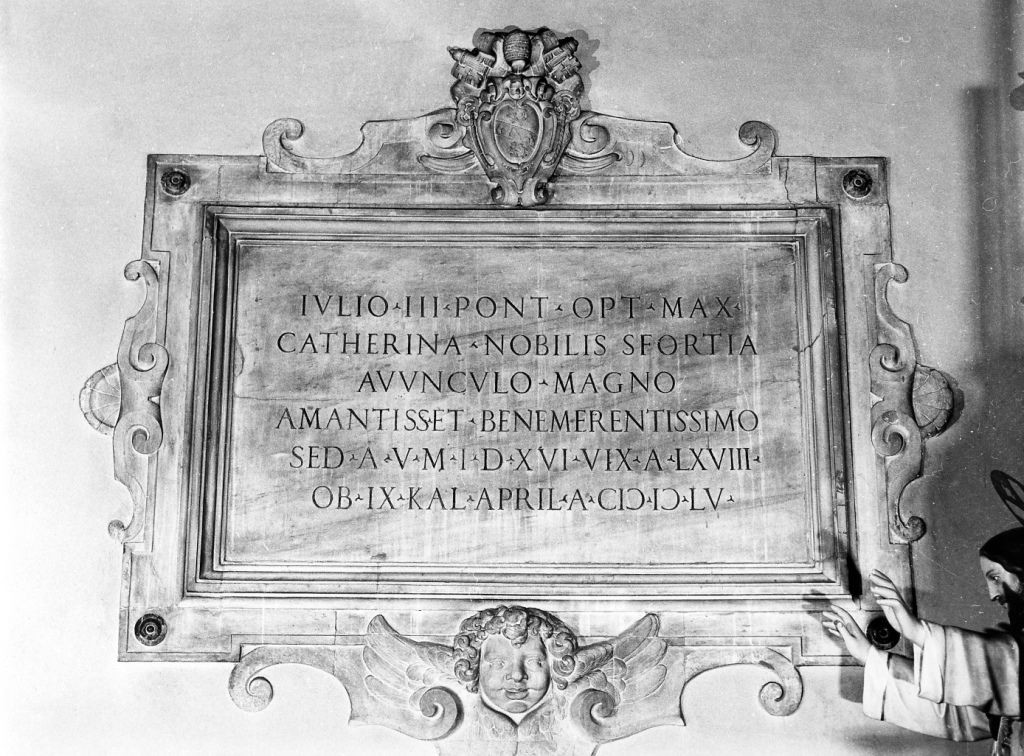 IVLIO · III · PONT · OPT · MAX ·
CATHERINA · NOBILIS SFORTIA
AVVNCVLO · MAGNO
AMANTISS·ET · BENEMERENTISSIMO
SED · A · V · M · I · D · XVI · VIX · A · LXVIII ·
OB · IX · KAL · APRIL · A · CIↃ · IↃ · LV ·